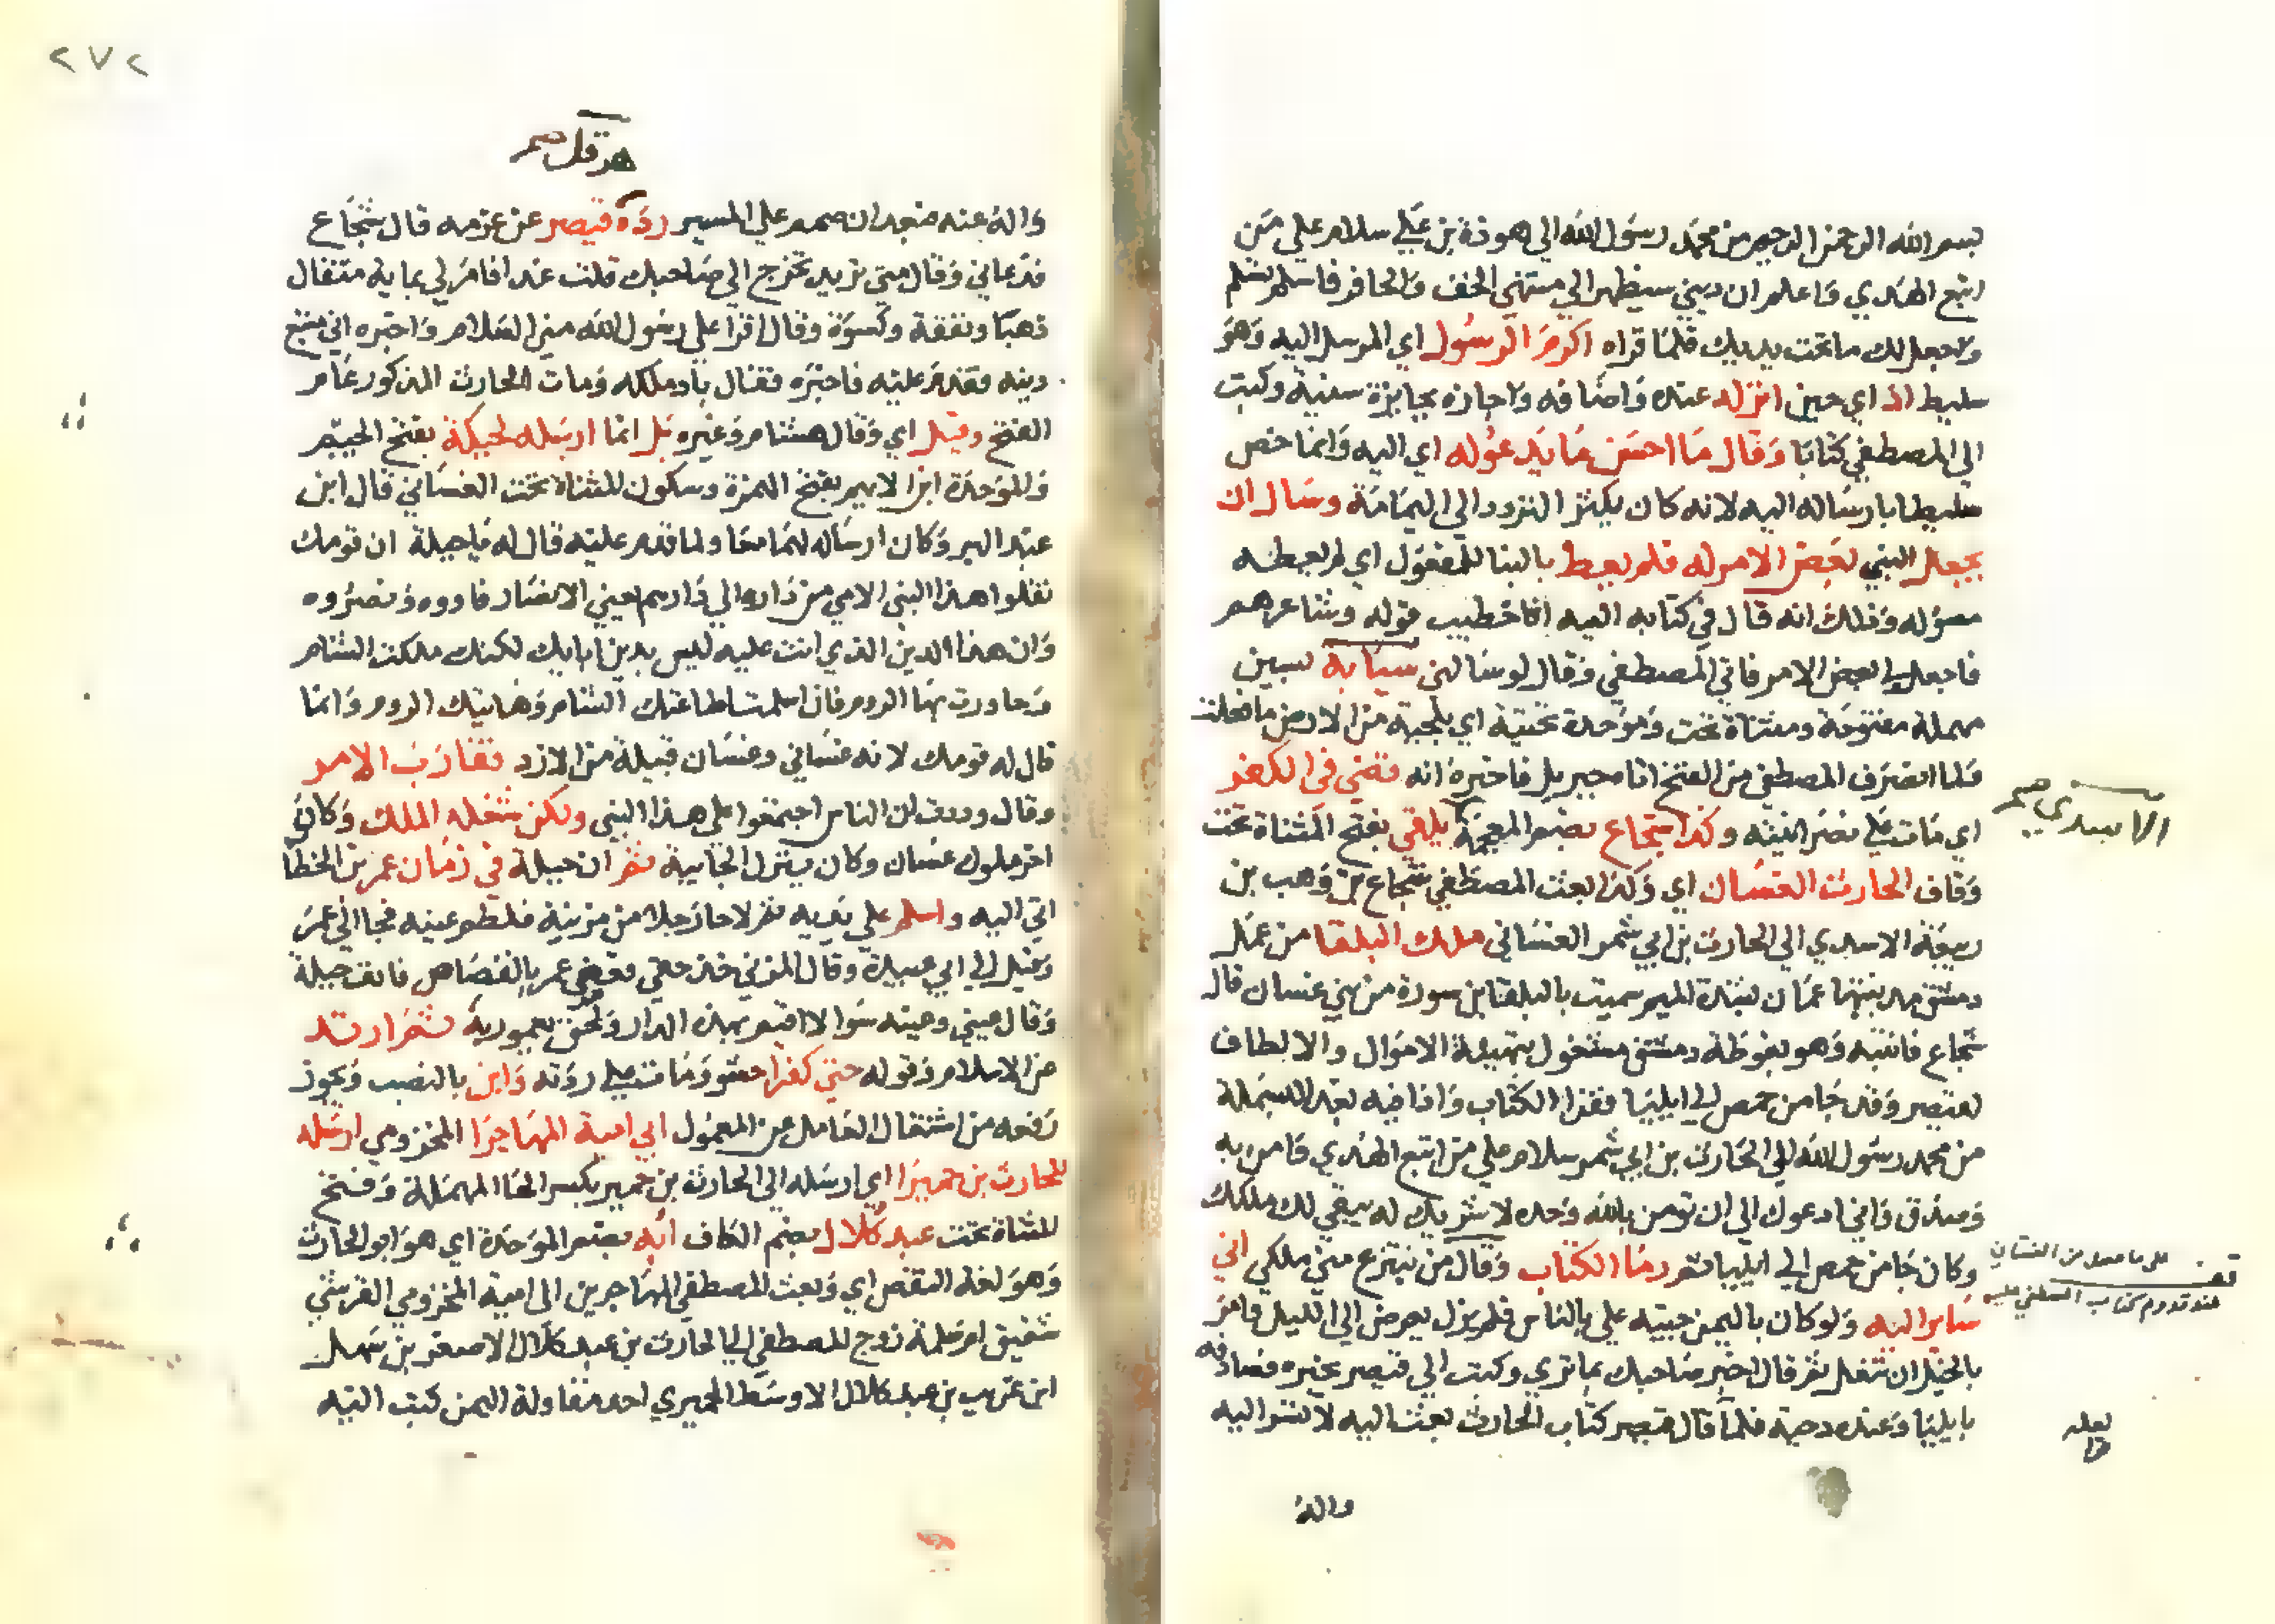 بسم الله الرحمن الرحيم من محمد رسول الله الي هوذة بن علي سلام علي من
اتبع الهدي واعلم ان ديني سيظهر الي منتهي الخف والحافر فاسلم تسلم
واجعل لك ما تحت يديك فلما قراه اكرم الرسول اي المرسل اليه وهو
سليط اذ اي حين انزله عنده واضافه واجازه بجايزة سنية وكتب
الي المصطفي كتابا وقال ما احسن ما تدعوله اي اليه وانما خص
سليطا بارساله اليه لانه كان يكثر التردد الي اليمامة وسال ان
يجعل النبي بعض الامر له فلم يعط بالبنا للمفعول اي لم يعطه
مسؤله وذلك انه قال في كتابه اليه انا خطيب قوله وشاعرهم
فاجعل لي بعض الامر فاتي المصطفي وقال لو سالني سيابة بسين
مهملة مفتوحة ومثناة تحت وموحدة تحتية اي بلحبة من الارض ما فعلت
فلما انصرف المصطفي من الفتح اتاه جبريل فاخبره انه قضي في الكفر
اي مات علي نصرانيته وكذا شجاع بضم المعجمة يلقي بفتح المثناة تحت
وقاف الحارث الغسان اي وكذا بعث المصطفي شجاع بن وهب بن
ربيعة الاسدي الي الحارث بن ابي شمر الغساني ملك البلقا من عمل
دمشق مدينتها عمان بشدة الميم سميت بالبلقا بن سورة من بني غسان قال
شجاع فانتيه وهو بغوطة دمشق مشغول بتهيئة الاموال والالطاف
لقيصر وقد جا من حمص الي ايليا فقرا الكتاب واذا فيه بعد البسملة
من محمد رسول الله الي الحارث بن ابي شمر سلام علي من اتبع الهدي وامن به
وصدق واني ادعوك الي ان تومن بالله وحده لا شريك له يبقي لك ملكك
وكان جا من حمص الي ايليا ثم رما الكتاب وقال من ينتزع مني ملكي اني
ساير اليه ولو كان باليمن جيته علي بالناس فلم يزل يعرض الي الليل وامر
بالخيل ان تنعل ثم قال اخبر صاحبك بما تري وكتب الي قيصر بخبره فصادفه
بايليا وعنده دحية فلما قرا قيصر كتاب الحارث بعث اليه لا تسر اليه
الاسدي صح
لعله
قرا
واله
٢٧٢
هرقل صح
واله عنه فبعد ان صمم علي المسير رده قيصر عن عزمه قال شجاع
فدعاني وقال متي تريد تخرج الي صاحبك قلت غدا فامر لي بماية مثقال
ذهبا ونفقة وكسوة وقال اقرا علي رسول الله مني السلام واخبره اني متبع
دينه فقدم عليه فاخبره فقال باد ملكه ومات الحارث المذكور عام
الفتح وقيل اي وقال هشام وغيره بل انما ارسله لجبلة بفتح الجيم
والموحدة ابن الايهم بفتح الهمزة وسكون المثناة تحت الغساني قال ابن
عبد البر وكان ارساله لهما معا ولما قدم عليه قال له يا جبلة ان قومك
نقلوا هذا النبي الامي من داره الي دارهم يعني الانصار فاووه ونصروه
وان هذا الدين الذي انت عليه ليس بدين ابايك لكنك ملكت الشام
وجاورت بها الروم فان اسلمت اطاعتك الشام وهابتك الروم وانما
قال له قومك لانه غساني وغسان قبيلة من الازد فقارب الامر
وقال وددت لن الناس اجتمعوا علي هذا النبي ولكن شغله الملك وكان
اخر ملوك غسان وكان ينزل الجابية ثم ان جبلة في زمان عمر بن الخطا
اتي اليه واسلم علي يديه ثم لاحا رجلا من مزينة فلطم عينه فجا الي عمر
وقيل الي ابي عبيدة وقال المزني خذ حقي فقضي عمر بالقصاص فانف جبلة
وقال عيني وعينه سوا لا اقيم بهذه الدار ولحق بعمورية ثم ارتد
عن الاسلام وقوله حتي كفرا حشو ومات علي ردته وابن بالنصب ويجوز
رفعه من اشتغال العامل عن المعمول ابي امية المهاجرا المخزومي ارسله
للحارث بن حميرا اي ارسله الي الحارث بن حمير بكسر الحا المهملة وفتح
المثناة تحت عبد كلال بضم الكاف ابه بضم الموحدة اي هو ابو الحارث
وهو لغة النقص اي وبعث المصطفي المهاجر بن ابي امية المخزومي القرشي
شقيق ام سلمة زوج المصطفي الي الحارث بن عبد كلال الاصغر بن سهل
ابن عريب بن عبد كلال الاوسط الحميري احد مقاولة اليمن كتب اليه